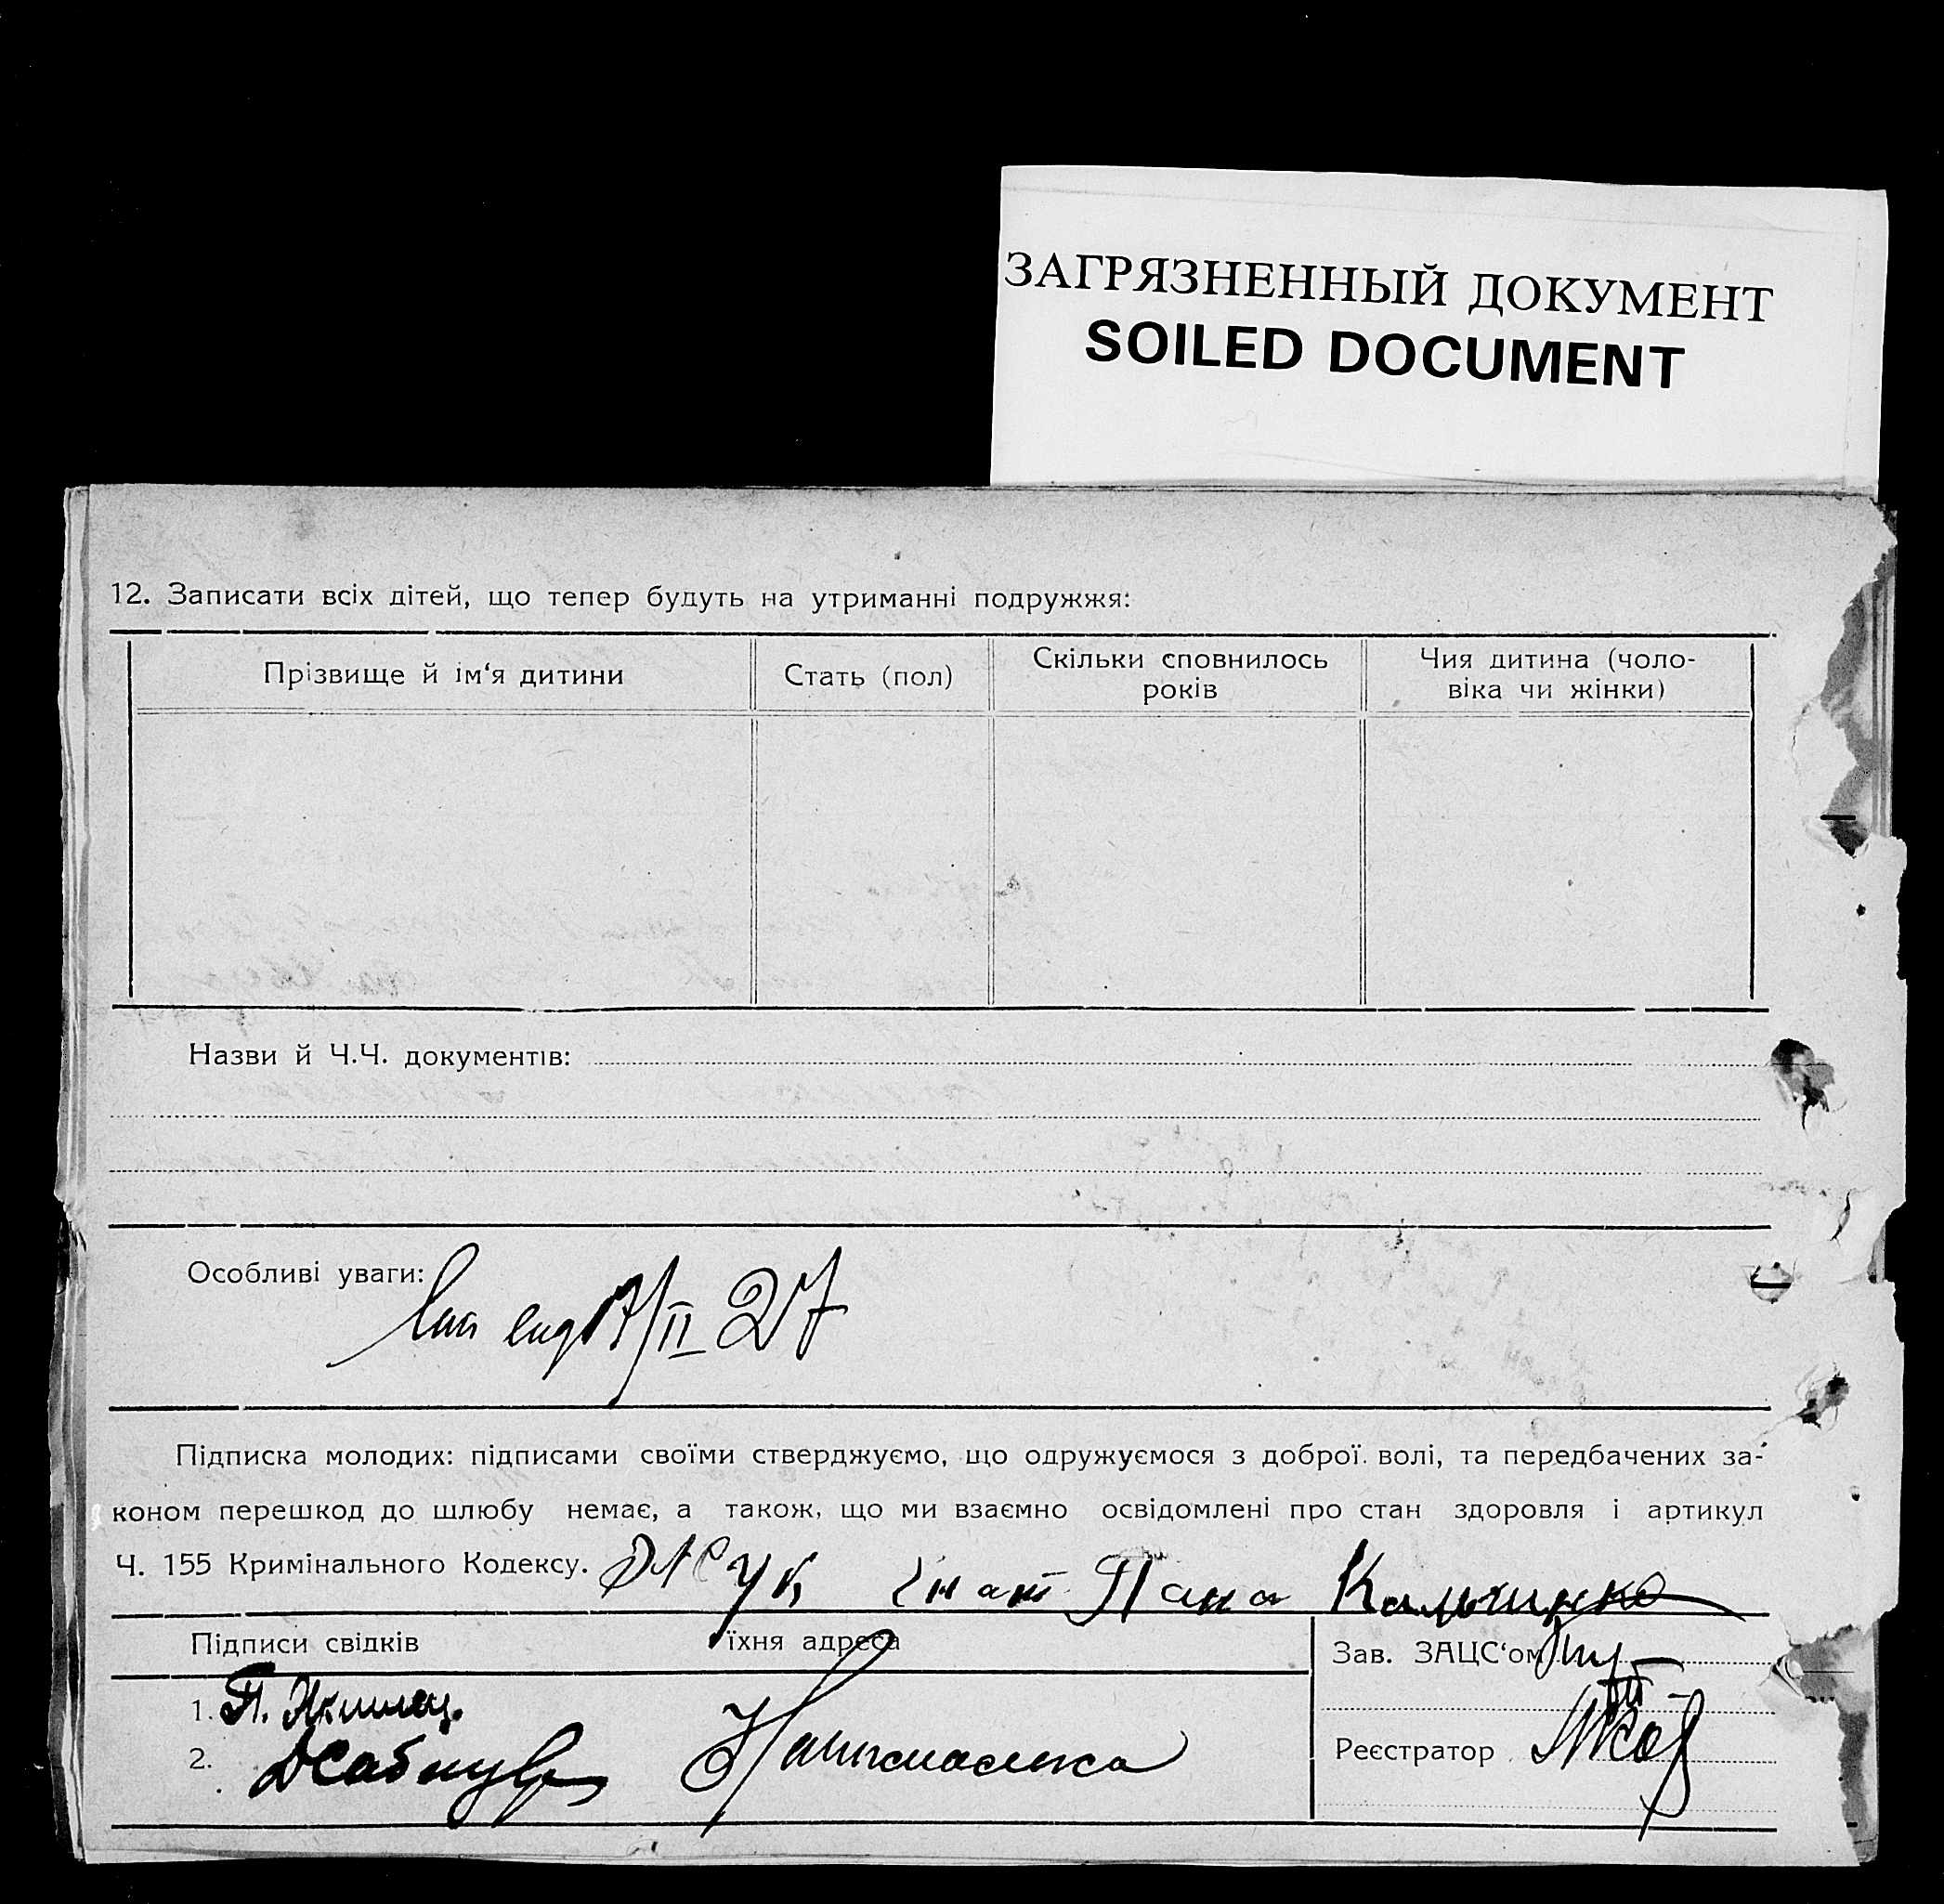 ЗАГРЯЗНЕННЫЙ ДОКУМЕНТ
SOILED DOCUMENT
12. Записати всіх дітей, що тепер будуть на утриманні подружжя:
Прізвище й ім‘я дитини
Стать (пол)
Скільки сповнилось
років
Чия дитина (чоло-
віка чи жінки)
Назви й Ч.Ч. документів:
Особливі уваги:
/II 27
Підписка молодих: підписами своїми стверджуємо, що одружуємося з доброї волі, та передбачених за-
коном перешкод до шлюбу немає, а також, що ми взаємно освідомлені про стан здоровля і артикул
Ч. 155 Кримінального Кодексу.
Підписи свідків
їхня адреса
Зав. ЗАЦС‘ом
1.
2.
Реєстратор